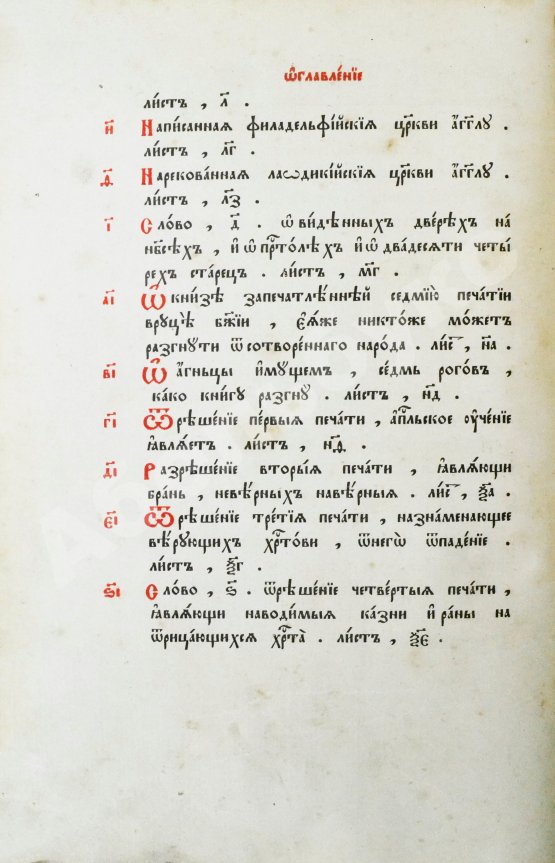 Ѡ҆главле́нїе
ли́стъ , л҃ .
и҃ Напи́санная филаделфі́йскїѧ цр҃кви а҆́гг҃лу .
ли́стъ , лг҃ .
ѳ҃ Нарекова́нная лаѡдикі́йскїѧ цр҃кви а҆́гг҃лу .
ли́стъ , лз҃ .
і҃ Сло́во , д҃ . ѡ҆ ви́дѣнныхъ две́рехъ на
нб҃сѣхъ , и҆ ѡ҆ прⷭ҇то́лѣхъ и҆ ѡ҆ два́десѧти четы́
рехъ ста́рецъ . ли́стъ , мг҃ .
аі҃ Ѡ҆ кни́зѣ запечатлѣ́ннѣй седмїю̀ печа́тїи
вруцѣ̀ бж҃їи , є҆ѧ́же никто́же мо́жетъ
разгнути ѿсотворе́ннаго наро́да . ли́с , на҃ .
ві҃ Ѡ҆ а҆́гньцы и҆му́щемъ , се́дмь рогѡ́въ ,
ка́ко кни́гу разгну̀ . ли́стъ , нд҃ .
гі҃ Ѿрѣше́нїе пе́рвыѧ печа́ти , а҆пⷭ҇льское ѹ҆че́нїе
ꙗ҆влѧ́етъ . ли́стъ , нѳ҃ .
ді҃ Разрѣше́нїе вторы́ѧ печа́ти , ꙗ҆влѧ́ющи
бра́нь , невѣ́рныхъ навѣ́рныѧ . ли́с , ѯа҃ .
єі҃ Ѿрѣше́нїе тре́тїѧ печа́ти , назна́менающее
вѣ́рующихъ хрⷭ҇то́ви , ѿнегѡ̀ ѿпаде́нїе .
ли́стъ , ѯг҃ .
ѕі҃ Сло́во , ѕ҃ . ѿрѣше́нїе четве́ртыѧ печа́ти ,
ꙗ҆влѧ́ющи наводи́мыѧ ка́зни и҆ ра́ны на
ѿрица́ющихсѧ хрⷭ҇та̀ . ли́стъ , ѯє҃ .